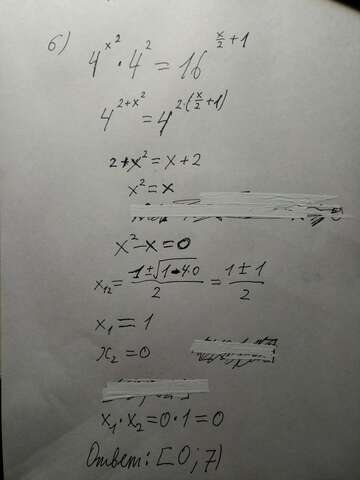 б) 4^{x^2} · 4^2 = 16^{\frac{x}{2}+1}
4^{2+x^2} = 4^{2·(\frac{x}{2}+1)}
2+x^2 = x+2
x^2 = x
x^2 - x = 0
x_{12} = \frac{1±\sqrt{1-4·0}}{2} = \frac{1±1}{2}
x_1 = 1
x_2 = 0
x_1 · x_2 = 0 · 1 = 0
Ответ: [0; 7)